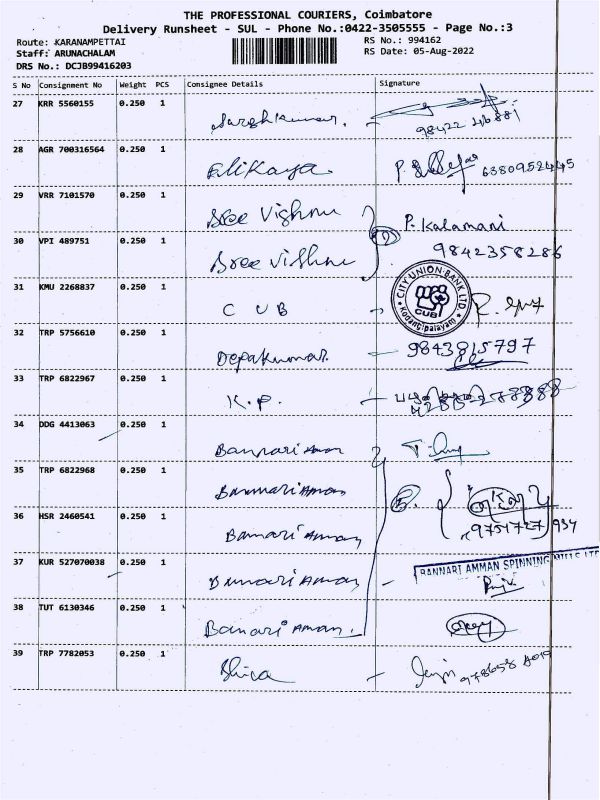 THE PROFESSIONAL COURIERS, Coimbatore
Delivery Runsheet - SUL - Phone No.:0422-3505555 - Page No.:3
Route: KARANAMPETTAI
RS No.: 994162
Staff: ARUNACHALAM
RS Date: 05-Aug-2022
DRS No.: DCJB99416203
S No Consignment No Weight PCS Consignee Details Signature
27 KRR 5560155 0.250 1
28 AGR 700316564 0.250 1 Elikaya. 6380952445
29 VRR 7101570 0.250 1 Sree Vishnu P. Kalamani
30 VPI 489751 0.250 1 Sree Vishnu 9842358286
31 KMU 2268837 0.250 1 C U B CITY UNION BANK LTD CUB Kodangipalayam
32 TRP 5756610 0.250 1 Depakumar 9843815797
33 TRP 6822967 0.250 1 K.P.
34 DDG 4413063 0.250 1 Bannari Aman
35 TRP 6822968 0.250 1 Bannari Aman
36 HSR 2460541 0.250 1 Bannari Aman
37 KUR 527070038 0.250 1 Bannari Aman BANNARI AMMAN SPINNING MILLS LTD
38 TUT 6130346 0.250 1 Bannari Aman.
39 TRP 7782053 0.250 1 Shica